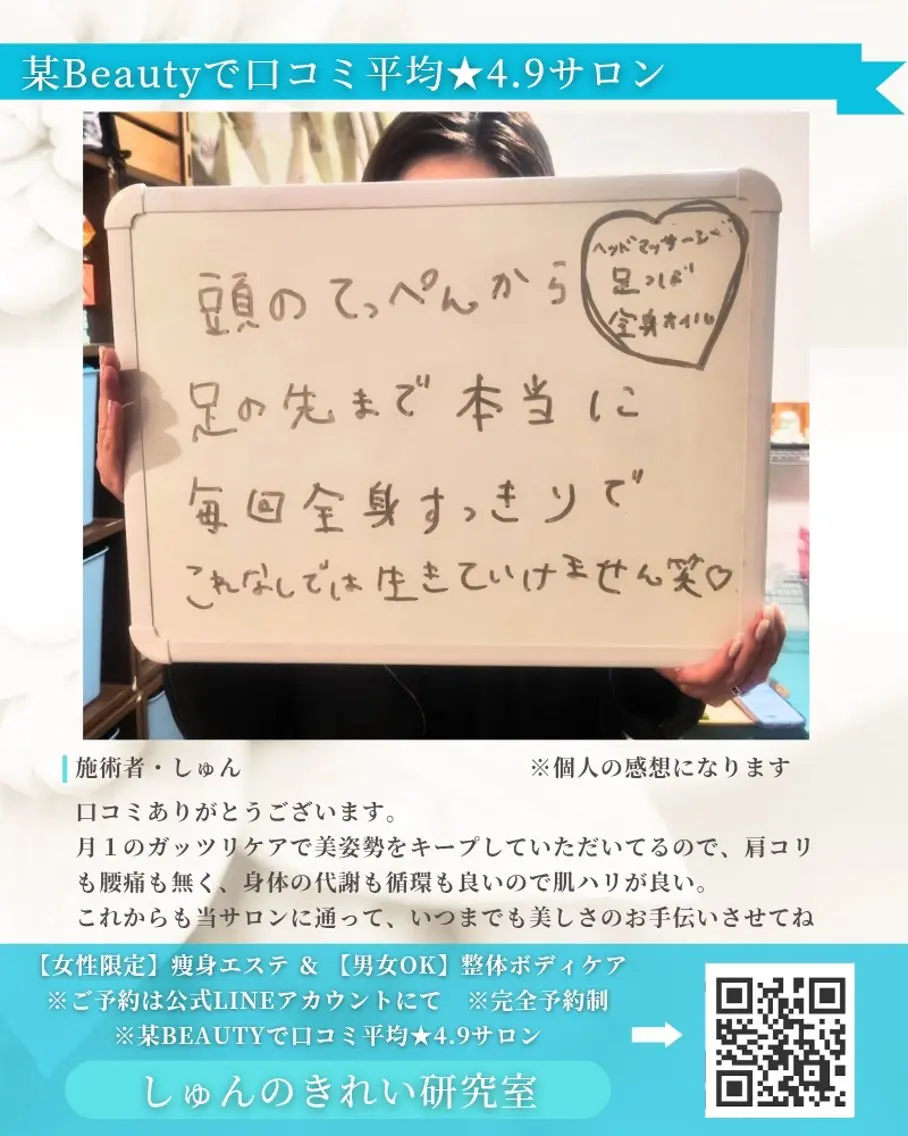 某Beautyで口コミ平均★4.9サロン
頭のてっぺんから
ヘッドマッサージ
足つぼ
全身オイル
足の先まで本当に
毎回全身すっきりで
これなしでは生きていけません笑♡
施術者・しゅん
※個人の感想になります
口コミありがとうございます。
月１のガッツリケアで美姿勢をキープしていただいてるので、肩コリ
も腰痛も無く、身体の代謝も循環も良いので肌ハリが良い。
これからも当サロンに通って、いつまでも美しさのお手伝いさせてね
【女性限定】痩身エステ & 【男女OK】整体ボディケア
※ご予約は公式LINEアカウントにて ※完全予約制
※某BEAUTYで口コミ平均★4.9サロン
しゅんのきれい研究室